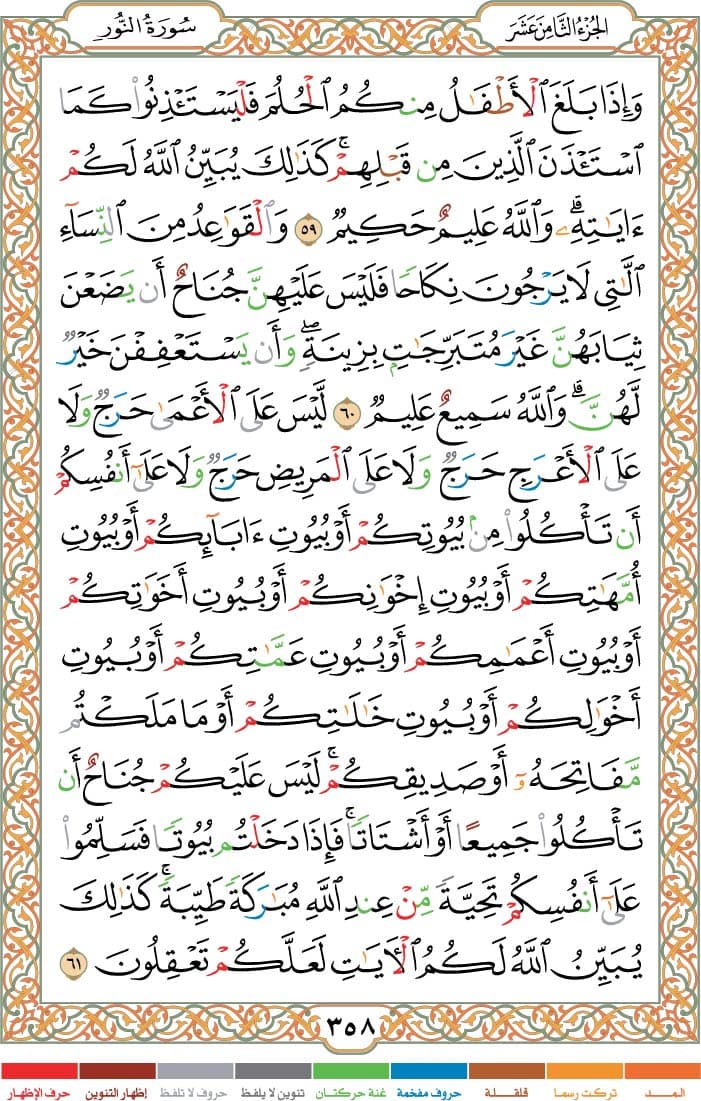 سُورَةُ النُّور
الجُزْءُ الثَّامِنَ عَشَرَ
وَإِذَا بَلَغَ ٱلْأَطْفَـٰلُ مِنكُمُ ٱلْحُلُمَ فَلْيَسْتَـْٔذِنُوا۟ كَمَا
ٱسْتَـْٔذَنَ ٱلَّذِينَ مِن قَبْلِهِمْ ۚ كَذَٰلِكَ يُبَيِّنُ ٱللَّهُ لَكُمْ
ءَايَـٰتِهِۦ ۗ وَٱللَّهُ عَلِيمٌ حَكِيمٌ ٥٩ وَٱلْقَوَٰعِدُ مِنَ ٱلنِّسَآءِ
ٱلَّـٰتِى لَا يَرْجُونَ نِكَاحًا فَلَيْسَ عَلَيْهِنَّ جُنَاحٌ أَن يَضَعْنَ
ثِيَابَهُنَّ غَيْرَ مُتَبَرِّجَـٰتٍۭ بِزِينَةٍ ۖ وَأَن يَسْتَعْفِفْنَ خَيْرٌ
لَّهُنَّ ۗ وَٱللَّهُ سَمِيعٌ عَلِيمٌ ٦٠ لَّيْسَ عَلَى ٱلْأَعْمَىٰ حَرَجٌ وَلَا
عَلَى ٱلْأَعْرَجِ حَرَجٌ وَلَا عَلَى ٱلْمَرِيضِ حَرَجٌ وَلَا عَلَىٰٓ أَنفُسِكُمْ
أَن تَأْكُلُوا۟ مِنۢ بُيُوتِكُمْ أَوْ بُيُوتِ ءَابَآئِكُمْ أَوْ بُيُوتِ
أُمَّهَـٰتِكُمْ أَوْ بُيُوتِ إِخْوَٰنِكُمْ أَوْ بُيُوتِ أَخَوَٰتِكُمْ
أَوْ بُيُوتِ أَعْمَـٰمِكُمْ أَوْ بُيُوتِ عَمَّـٰتِكُمْ أَوْ بُيُوتِ
أَخْوَٰلِكُمْ أَوْ بُيُوتِ خَـٰلَـٰتِكُمْ أَوْ مَا مَلَكْتُم
مَّفَاتِحَهُۥٓ أَوْ صَدِيقِكُمْ ۚ لَيْسَ عَلَيْكُمْ جُنَاحٌ أَن
تَأْكُلُوا۟ جَمِيعًا أَوْ أَشْتَاتًا ۚ فَإِذَا دَخَلْتُم بُيُوتًا فَسَلِّمُوا۟
عَلَىٰٓ أَنفُسِكُمْ تَحِيَّةً مِّنْ عِندِ ٱللَّهِ مُبَـٰرَكَةً طَيِّبَةً ۚ كَذَٰلِكَ
يُبَيِّنُ ٱللَّهُ لَكُمُ ٱلْـَٔايَـٰتِ لَعَلَّكُمْ تَعْقِلُونَ ٦١
٣٥٨
المـــد
تركت رسما
قلقـلـة
حروف مفخمة
غنة حركتان
تنوين لا يلفظ
حروف لا تلفظ
إظهار التنوين
حرف الإظهار